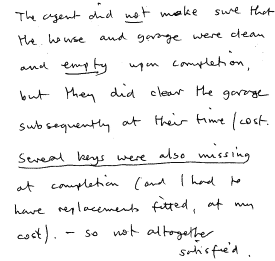 The agent did not make sure that
the house and garage were clean
and empty upon completion,
but they did clear the garage
subsequently at their time / cost.
Several keys were also missing
at completion (and I had to
have replacements fitted, at my
cost). - so not altogether
satisfied.